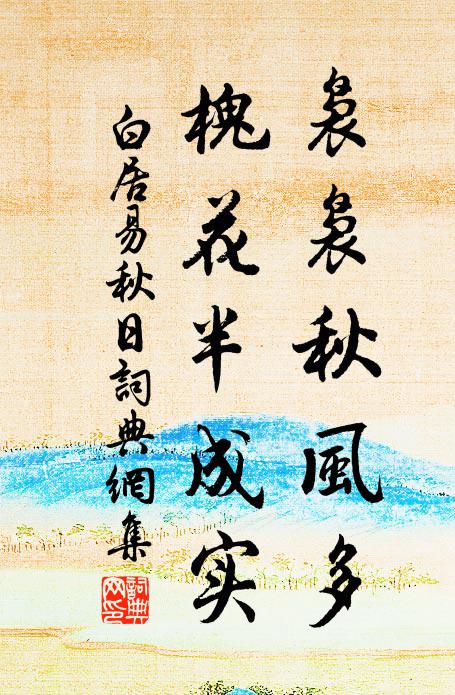 袅袅秋風多
槐花半成实
白居易秋日詞典網集
詞典网印